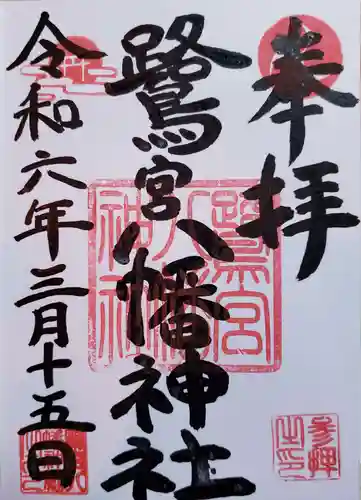 奉拝
鷺宮八幡神社
令和六年三月十五日
鷺宮八幡神社
参拝之印